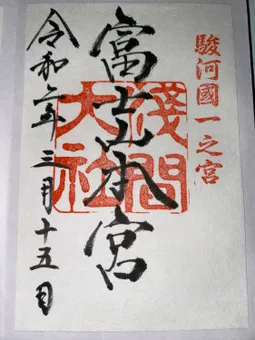 駿河國一之宮
富士本宮
淺間
大社
令和六年三月十五日